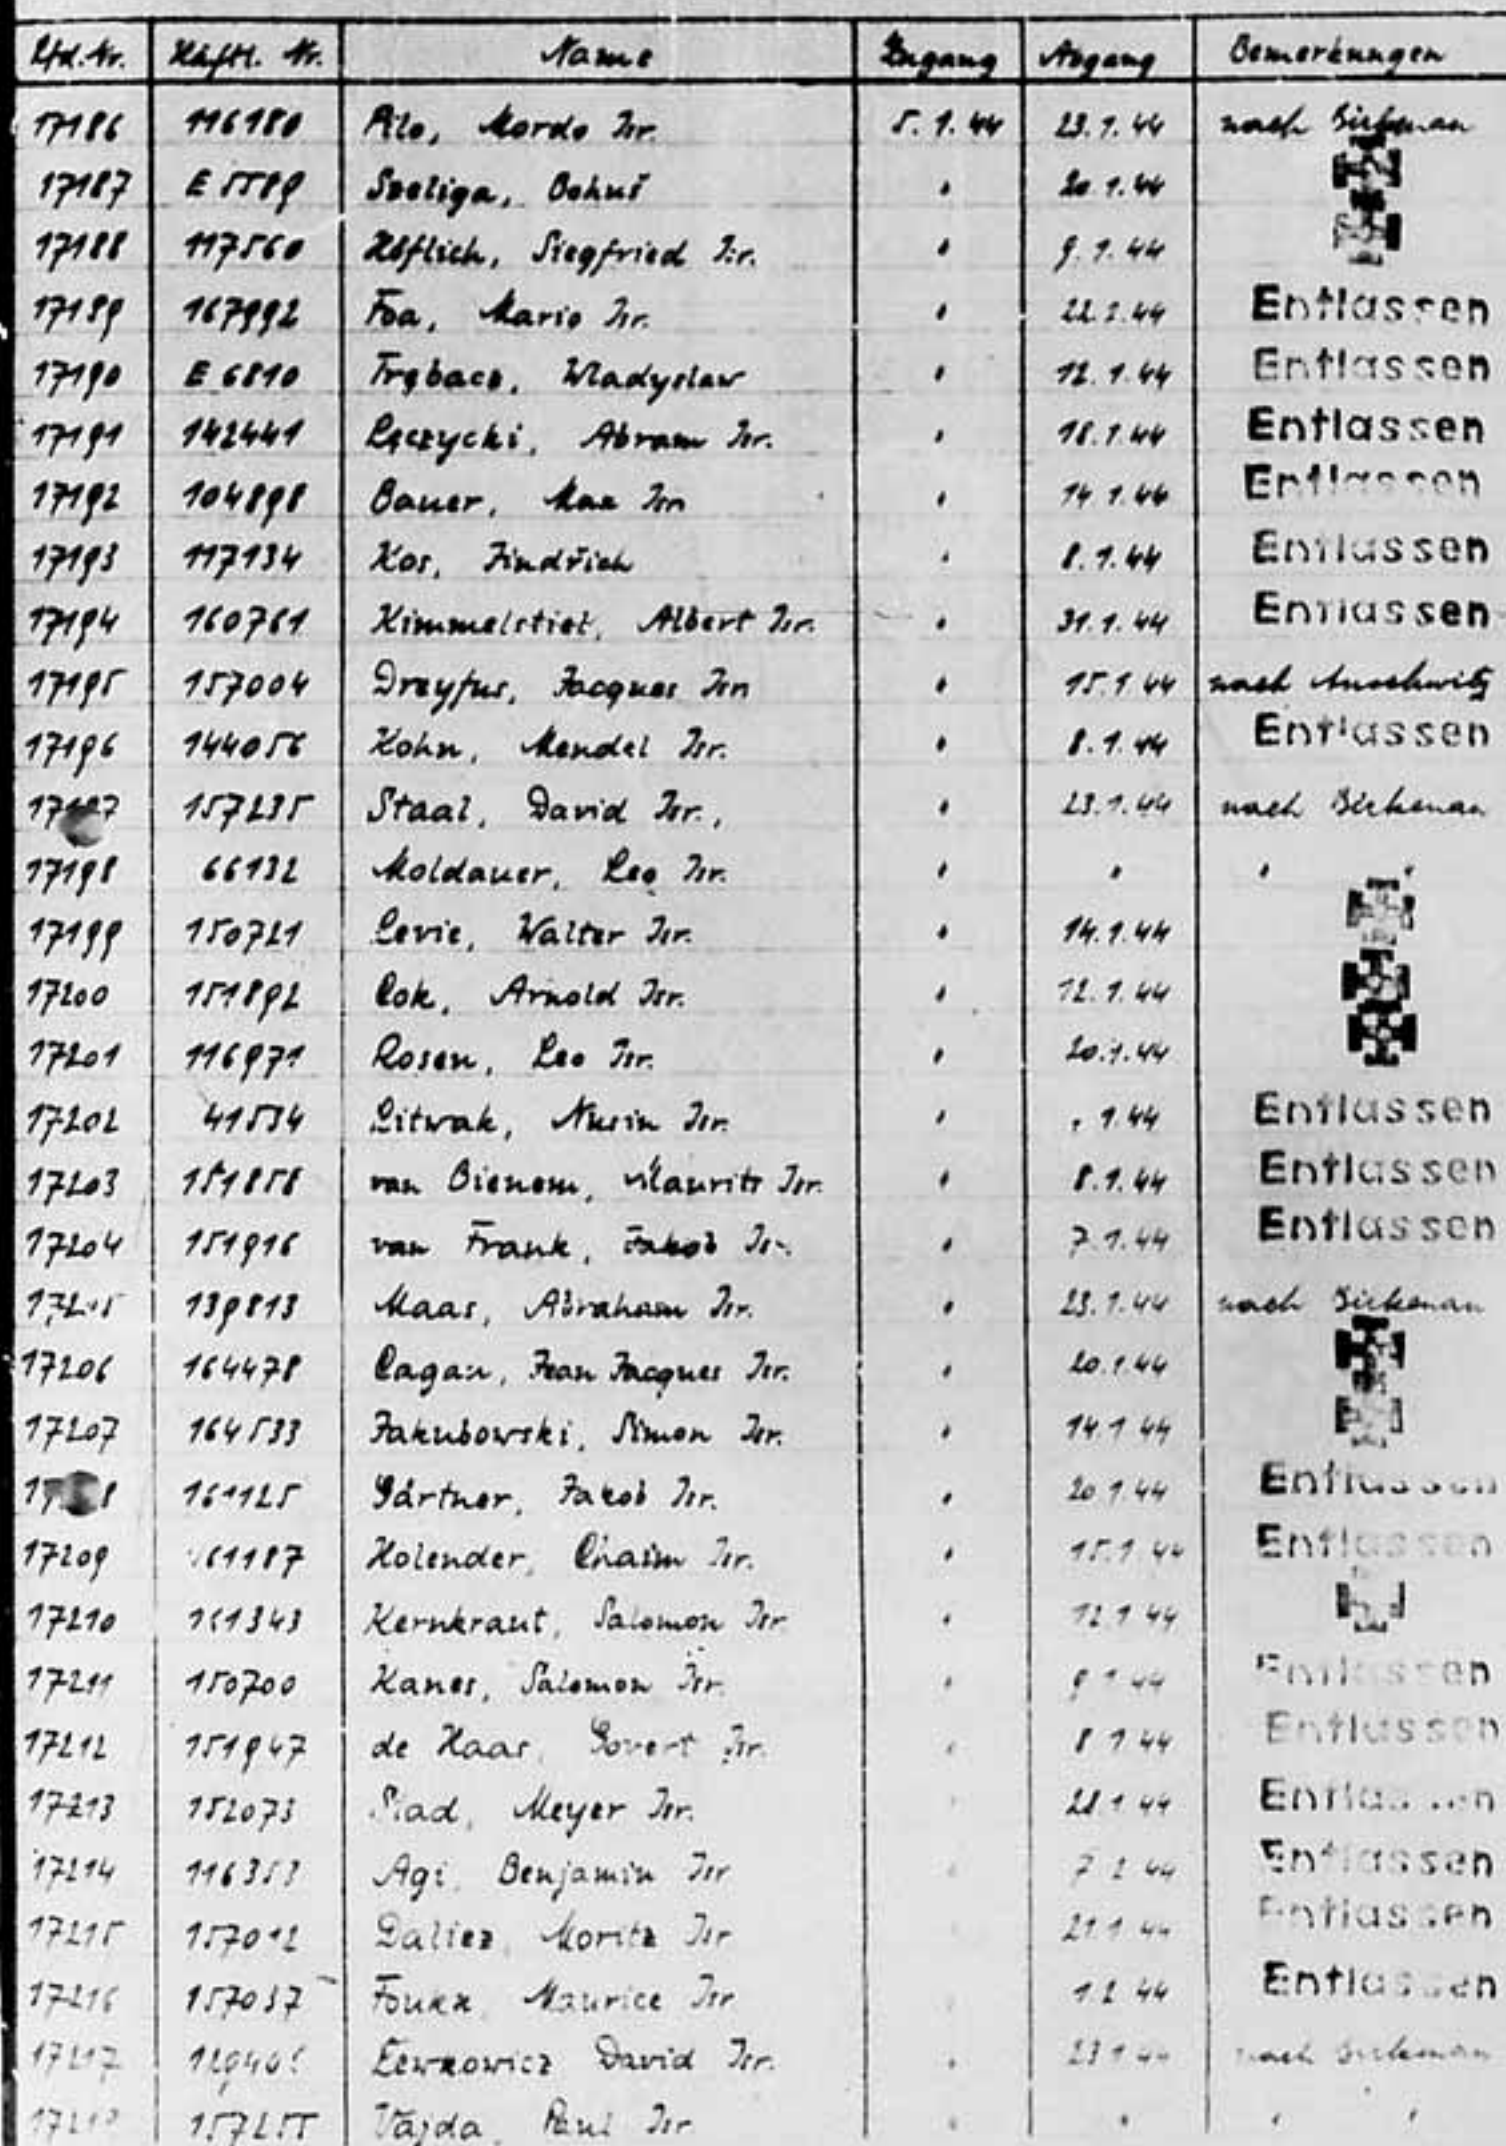 Lfd. Nr. Häftl. Nr. Name Zugang Abgang Bemerkungen
17186 116180 Pilo, Mordo Isr. 5.1.44 23.1.44 nach Birkenau
17187 E 5589 Szeliga, Bohuš " 20.1.44
17188 117560 Höflich, Siegfried Isr. " 9.1.44
17189 167992 Foa, Mario Isr. " Entlassen
17190 E 6810 Trębacz, Wladyslaw " 12.1.44 Entlassen
17191 142441 Łęczycki, Abram Isr. " 18.1.44 Entlassen
17192 104898 Bauer, Max Isr. " 14.1.44 Entlassen
17193 117134 Kos, Jindřich " 8.1.44 Entlassen
17194 160761 Himmelstiel, Albert Isr. " 31.1.44 Entlassen
17195 157004 Dreyfus, Jacques Isr. " 15.1.44 nach Auschwitz
17196 144056 Kohn, Mendel Isr. " 8.1.44 Entlassen
157235 Staal, David Isr., " 23.1.44 nach Birkenau
17198 66132 Moldauer, Leo Isr. " " " "
17199 150721 Levie, Walter Isr. " 14.1.44
17200 151892 Cok, Arnold Isr. " 12.1.44
17201 116971 Rosen, Leo Isr. " 20.1.44
17202 41534 Litwak, Nusin Isr. " Entlassen
17203 151858 van Bienem, Maurits Isr. " 8.1.44 Entlassen
17204 151916 van Frank, Jakob Isr. " 7.1.44 Entlassen
139813 Maas, Abraham Isr. " 23.1.44 nach Birkenau
17206 164478 Cagan, Jean Jacques Isr. " 20.1.44
17207 164533 Jakubowski, Simon Isr. " 14.1.44
161125 Gärtner, Jakob Isr. " 20.1.44 Entlassen
17209 Holender, Chaim Isr. " 15.1.44 Entlassen
17210 161343 Kernkraut, Salomon Isr. " 12.1.44
17211 150700 Kanes, Salomon Isr. " 9.1.44 Entlassen
17212 151947 de Haas, Govert Isr. " 8.1.44 Entlassen
17213 152073 Meyer Isr. " Entlassen
17214 116353 Agi, Benjamin Isr. " 7.2.44 Entlassen
17215 157012 Moritz Isr. 21.1.44 Entlassen
17216 157037 Maurice Isr. " 1.2.44 Entlassen
17217 Lewkowicz David Isr. " 23.1.44 nach Birkenau
157255 Vajda, Paul Isr. " " " "